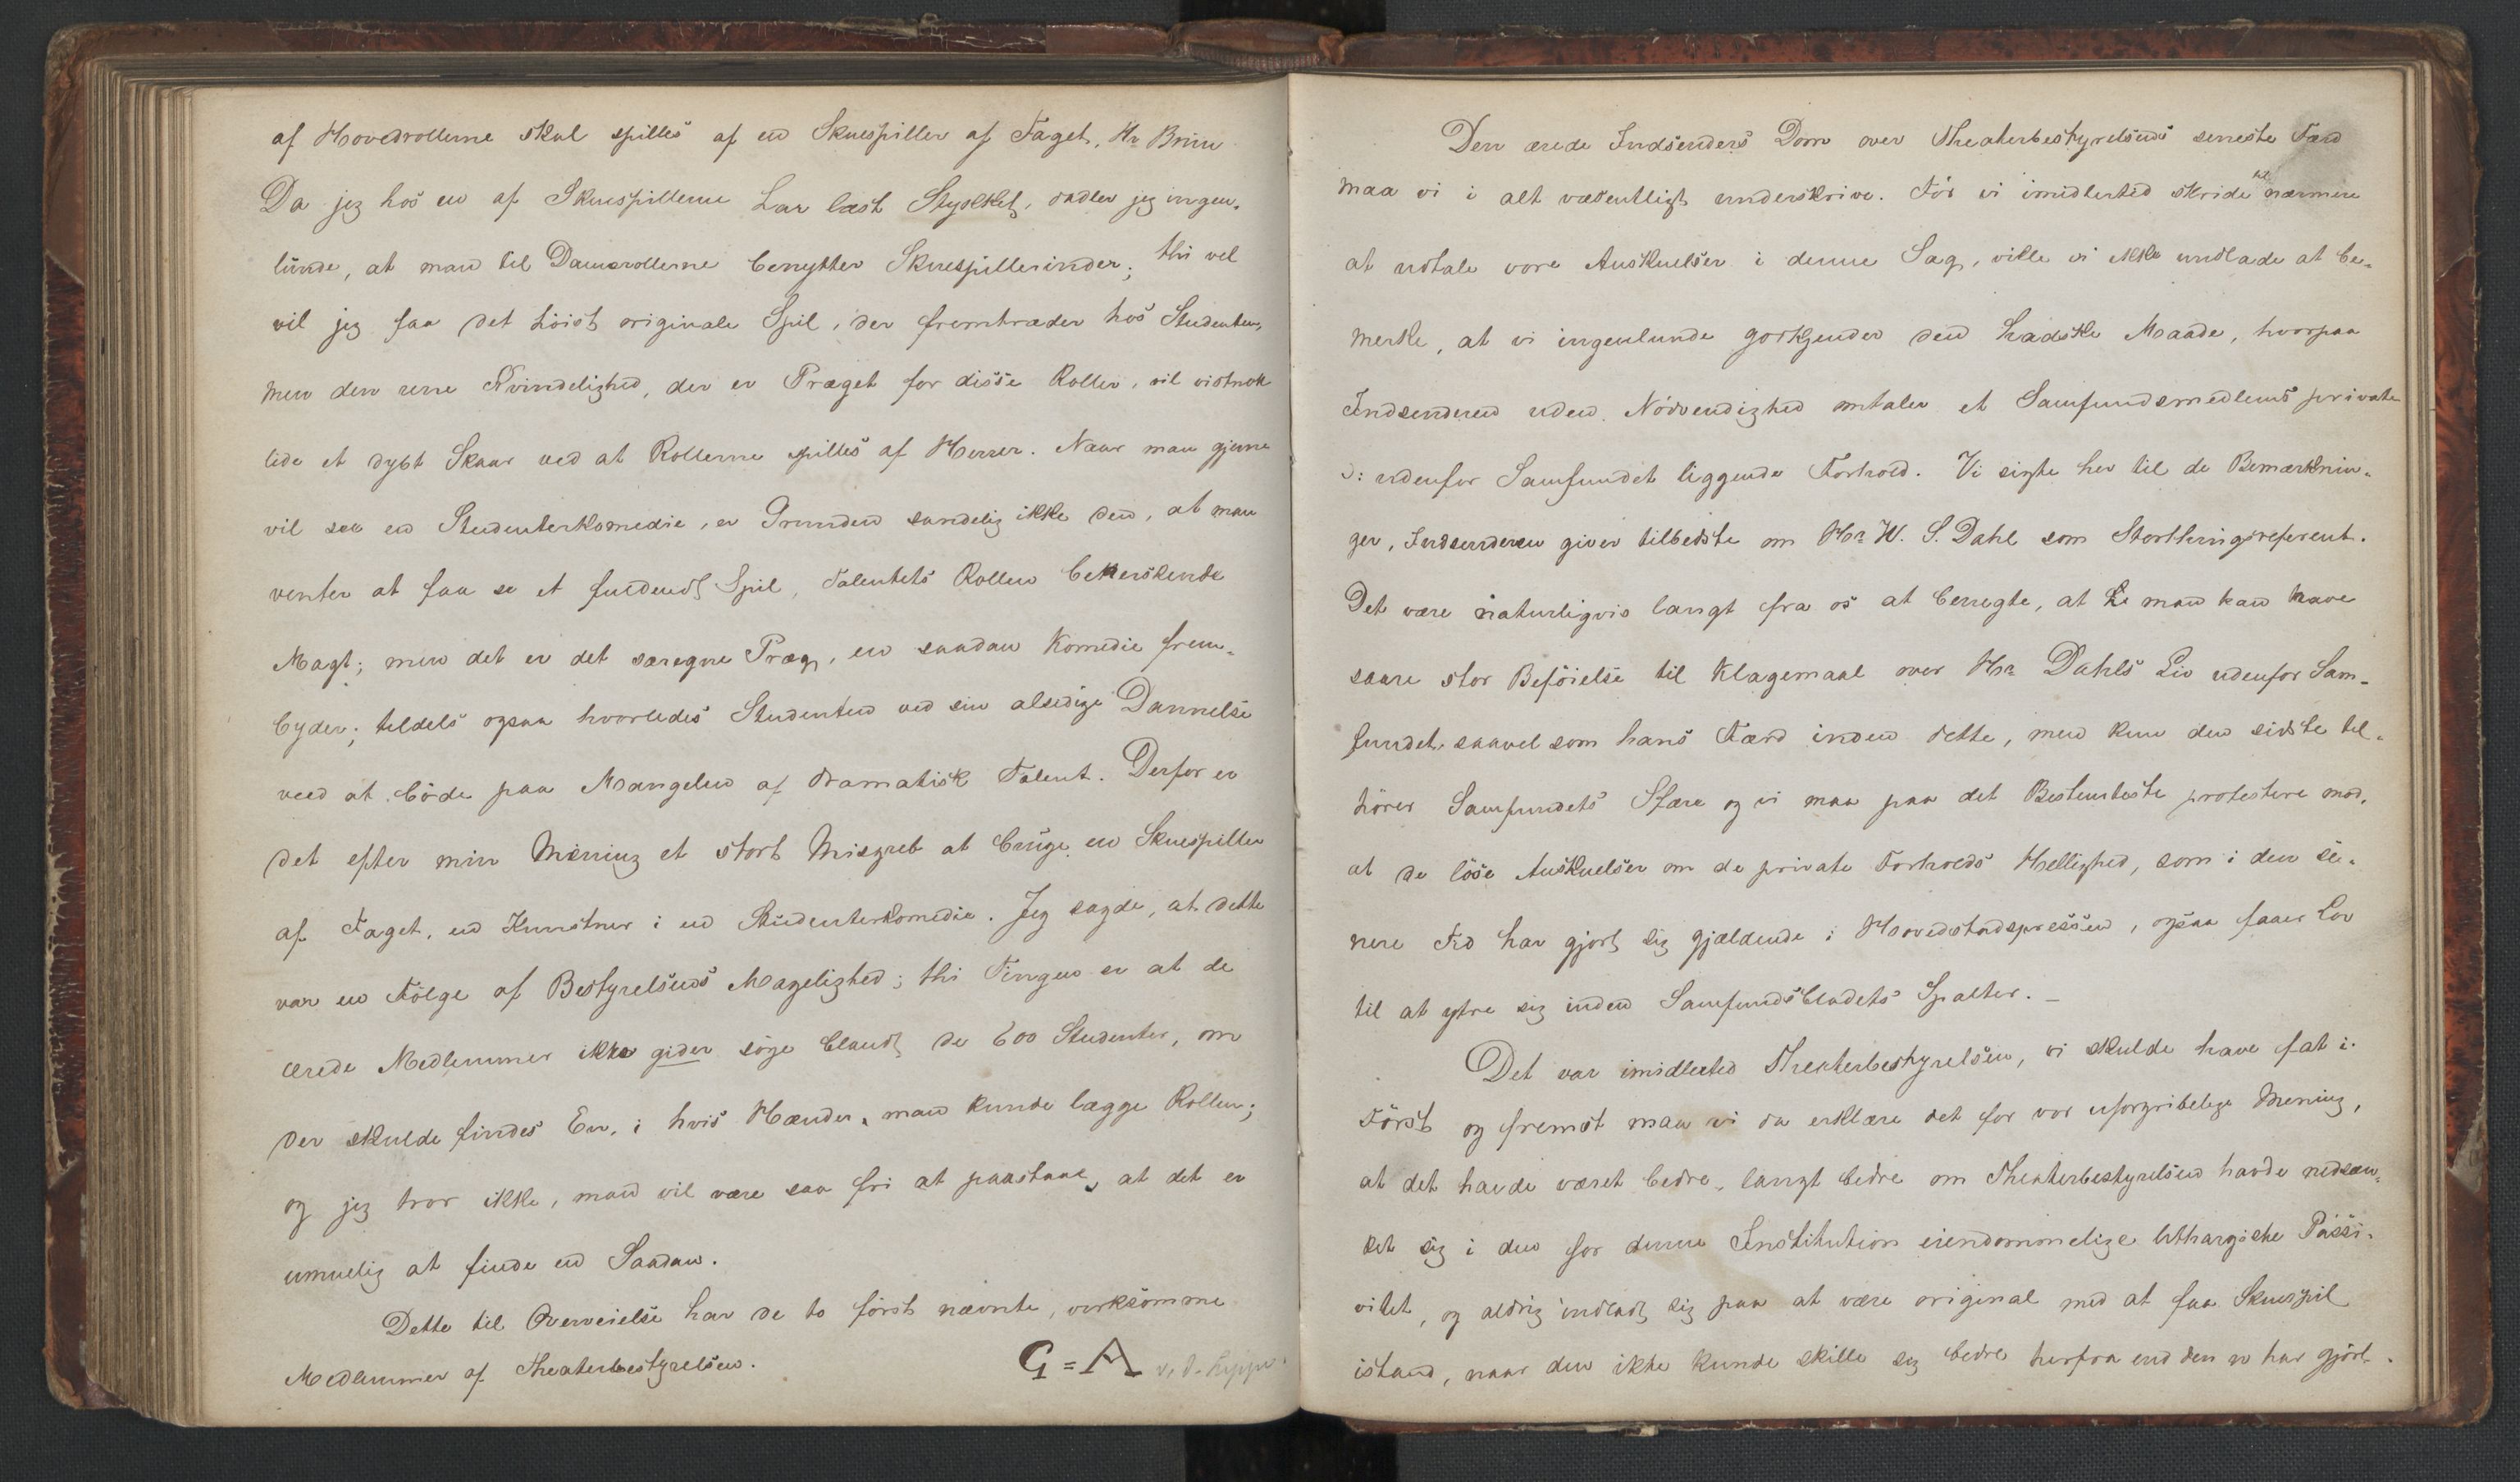 af Hovedrollerne skal spilles af en Skuespiller af Faget, Hr Brun
Da jeg hos en af Skuespillerne har læst Stykket, dadler jeg ingen-
lunde, at man til Damerollerne benytter Skuespillerinder; thi vel
vil jeg faa det höist originale Spil, der fremtræder hos Studenten,
men den rene Kvindelighed, der er Præget for disse Roller, vil vistnok
lide et dybt Skaar ved at Rollerne spilles af Herrer. Naar man gjerne
vil see en Studenterkomedie, er Grunden sandelig ikke den, at man
venter at faa se et fuldendt Spil, Talentets Rollen beherskende
Magt; men det er det særegne Præg, en saadan Komedie frem-
byder; tildels ogsaa hvorledes Studenten ved sin alsidige Dannelse
veed at böde paa Mangelen af dramatisk Talent. Derfor er
det efter min Mening et stort Misgreb at bruge en Skuespiller
af Faget, en Kunstner i en Studenterkomedie. Jeg sagde, at dette
var en Fölge af Bestyrelsens Magelighed; thi Tingen er at de
ærede Medlemmer ikke gider söge blandt de 600 Studenter, om
der skulde findes En, i hvis Hænder, man kunde lægge Rollen;
og jeg tror ikke, man vil være saa fri at paastaae, at det er
umuelig at finde en Saadan.
Dette til Overveielse har de to först nævnte, virksomme
Medlemmer af Theaterbestyrelsen.
G=A
Den ærede Indsenders Dom over Theaterbestyrelsens seneste Færd
maa vi i alt væsentligt underskrive. För vi imidlertid skride til nærmere
at udtale vore Anskuelser i denne Sag, ville vi ikke undlade at be-
merke, at vi ingenlunde godkjender den hadske Maade, hvorpaa
Indsenderen uden Nödvendighed omtaler et Samfundsmedlems private
ɔ: udenfor Samfundet liggende Forhold. Vi sigte her til de Bemærknin-
ger, Indsenderen giver tilbedste om Hr W. S. Dahl som Storthingsreferent.
Det være naturligvis langt fra os at benegte, at man kan have
saare stor Beföielse til Klagemaal over Hr Dahls Liv udenfor Sam-
fundet, saavel som hans Færd inden dette, men kun den sidste til-
hörer Samfundets Sfære og vi maa paa det Bestemteste protestere mod,
at de löse Anskuelser om de private Forholds Hellighed, som i den se-
nere Tid har gjort sig gjældende i Hovedstadspressen, ogsaa faaer Lov
til at ytre sig inden Samfundsbladets Spalter. –
Det var imidlertid Theaterbestyrelsen, vi skulde have fat i.
Först og fremst maa vi da erklære det for vor uforgribelige Mening,
at det havde været bedre, langt bedre om Theaterbestyrelsen havde nedsæn-
ket sig i den for denne Institution eiendommelige lethargiske Passi-
vitet, og aldrig indladt sig paa at være original med at faa Skuespil
istand, naar den ikke kunde skille sig bedre herfra end den nu har gjort.